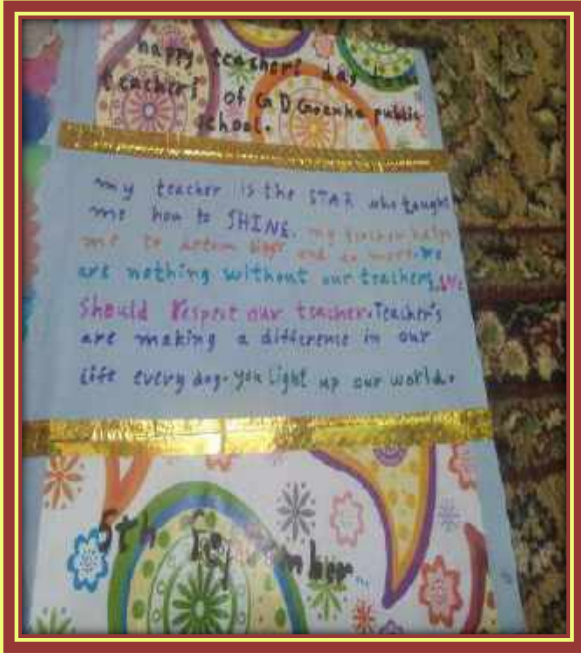 happy teacher's day to all
teachers of G D Goenka public
school.
my teacher is the STAR who taught
me how to SHINE. my teacher helps
me to dream bigger and do more. We
are nothing without our teachers. We
should respect our teacher. Teacher's
are making a difference in our
life every day. You light up our world.
5th September